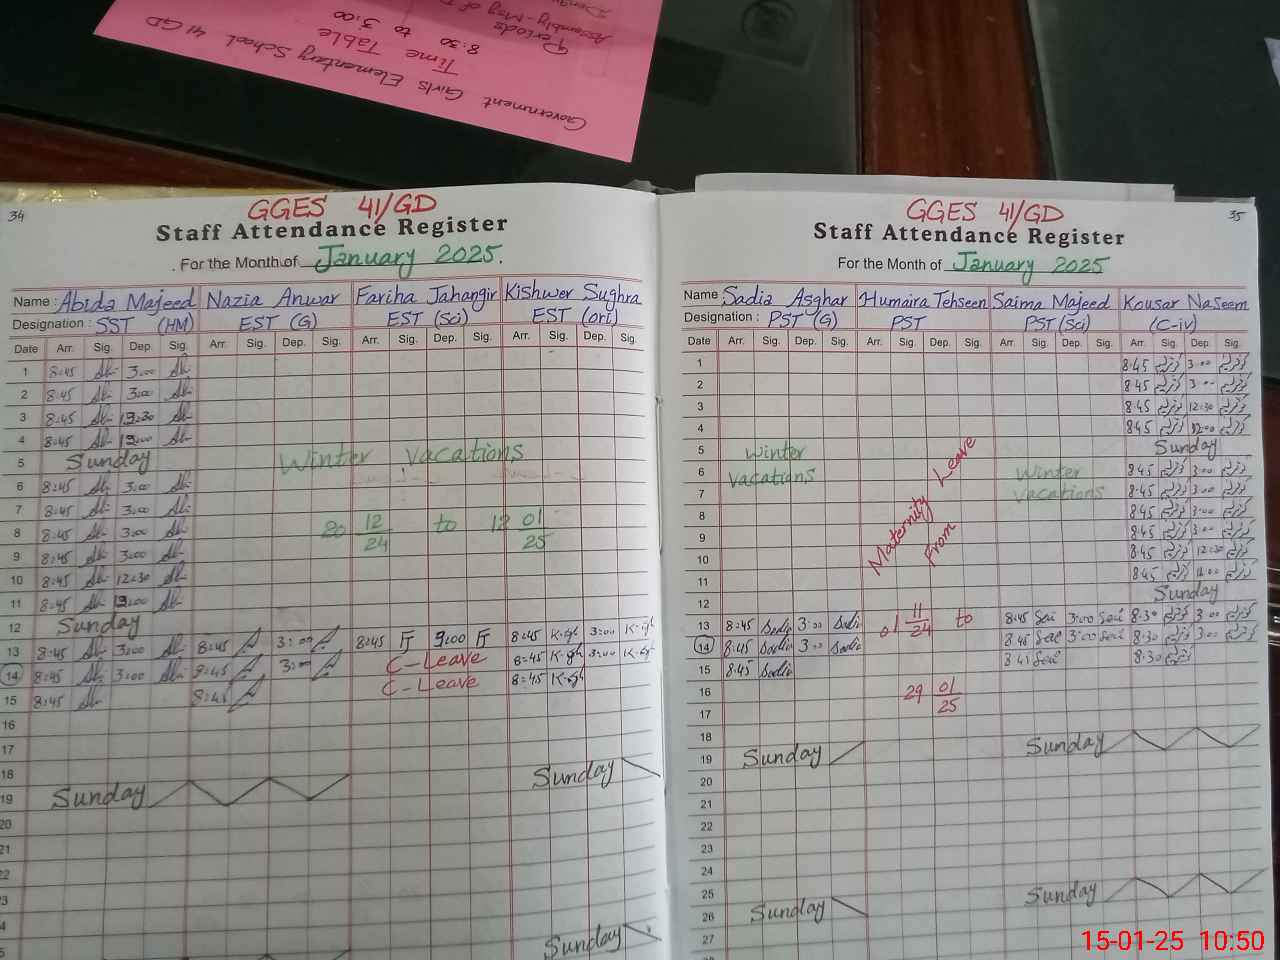 Government Girls Elementary School 41 GD
Time Table
8:30 to 3:00
Periods
34
GGES 41/GD
Staff Attendance Register
For the Month of January 2025.
Name : Abida Majeed Nazia Anwar Fariha Jahangir Kishwer Sughra
Designation : SST (HM) EST (G) EST (Sci) EST (ori)
Date Arr. Sig. Dep. Sig. Arr. Sig. Dep. Sig. Arr. Sig. Dep. Sig. Arr. Sig. Dep. Sig.
1 8:45 3:00
2 8:45 3:00
3 8:45 12:30
4 8:45
5 Sunday Winter Vacations
6 8:45 3:00
7 8:45 3:00
8 8:45 3:00 20 12/24 to 12 01/25
9 8:45 3:00
10 8:45 12:30
11 8:45
12 Sunday
13 8:45 3:00 8:45 3:00 8:45 FJ FJ 8:45 K-gh 3:00 K-gh
14 8:45 3:00 8:45 3:00 C-Leave 8:45 K-gh 3:00 K-gh
15 8:45 8:45 C-Leave 8:45 K-gh
16
17
18 Sunday
19 Sunday
20
21
Sunday
35
GGES 41/GD
Staff Attendance Register
For the Month of January 2025
Name Sadia Asghar Humaira Tehseen Saima Majeed Kousar Naseem
Designation : PST (G) PST PST (Sci) (C-iv)
Date Arr. Sig. Dep. Sig. Arr. Sig. Dep. Sig. Arr. Sig. Dep. Sig. Arr. Sig. Dep. Sig.
1 8:45 3:00
2 8:45 3:00
3 8:45 12:30
4 8:45 12:00
5 Winter Sunday
6 Vacations Maternity Leave Winter 8:45 3:00
7 Vacations 8:45 3:00
8 8:45 3:00
9 From 8:45 3:00
10 8:45 12:30
11 8:45 12:00
12 Sunday
13 8:45 Sadia 3:00 Sadia 01 11/24 to 8:45 Sai 3:00 Sai 8:30 3:00
14 8:45 Sadia 3:00 Sadia 8:45 Sai 3:00 Sai 8:30 3:00
15 8:45 Sadia Sai 8:30
16 29 01/25
17
18
19 Sunday Sunday
20
21
22
23
24
25 Sunday
26 Sunday
27
15-01-25 10:50